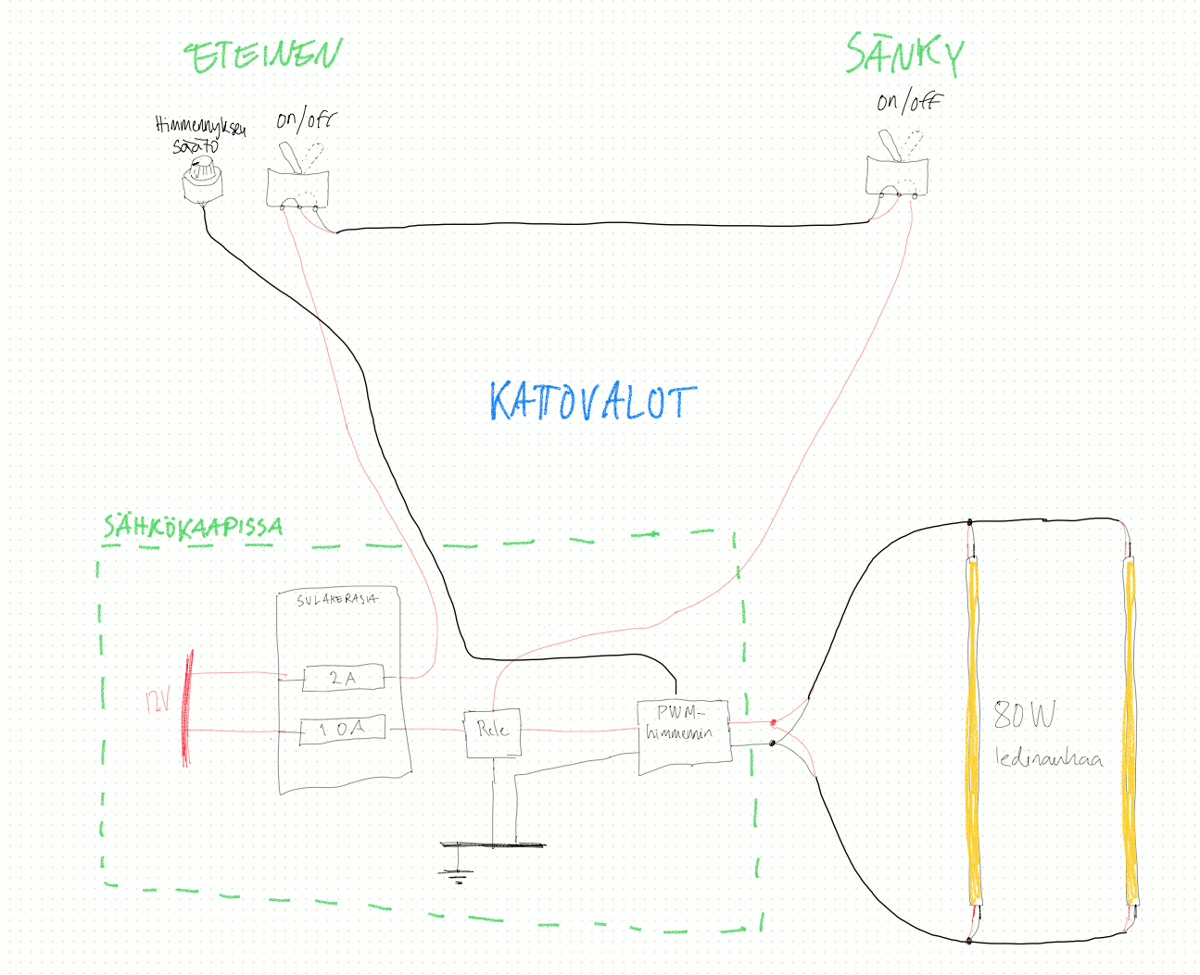 ETEINEN
SÄNKY
Himmennyksen
säätö
on/off
on/off
KATTOVALOT
SÄHKÖKAAPISSA
SULAKERASIA
12V
2A
10A
Rele
PWM-
himmennin
80W
ledinauhaa